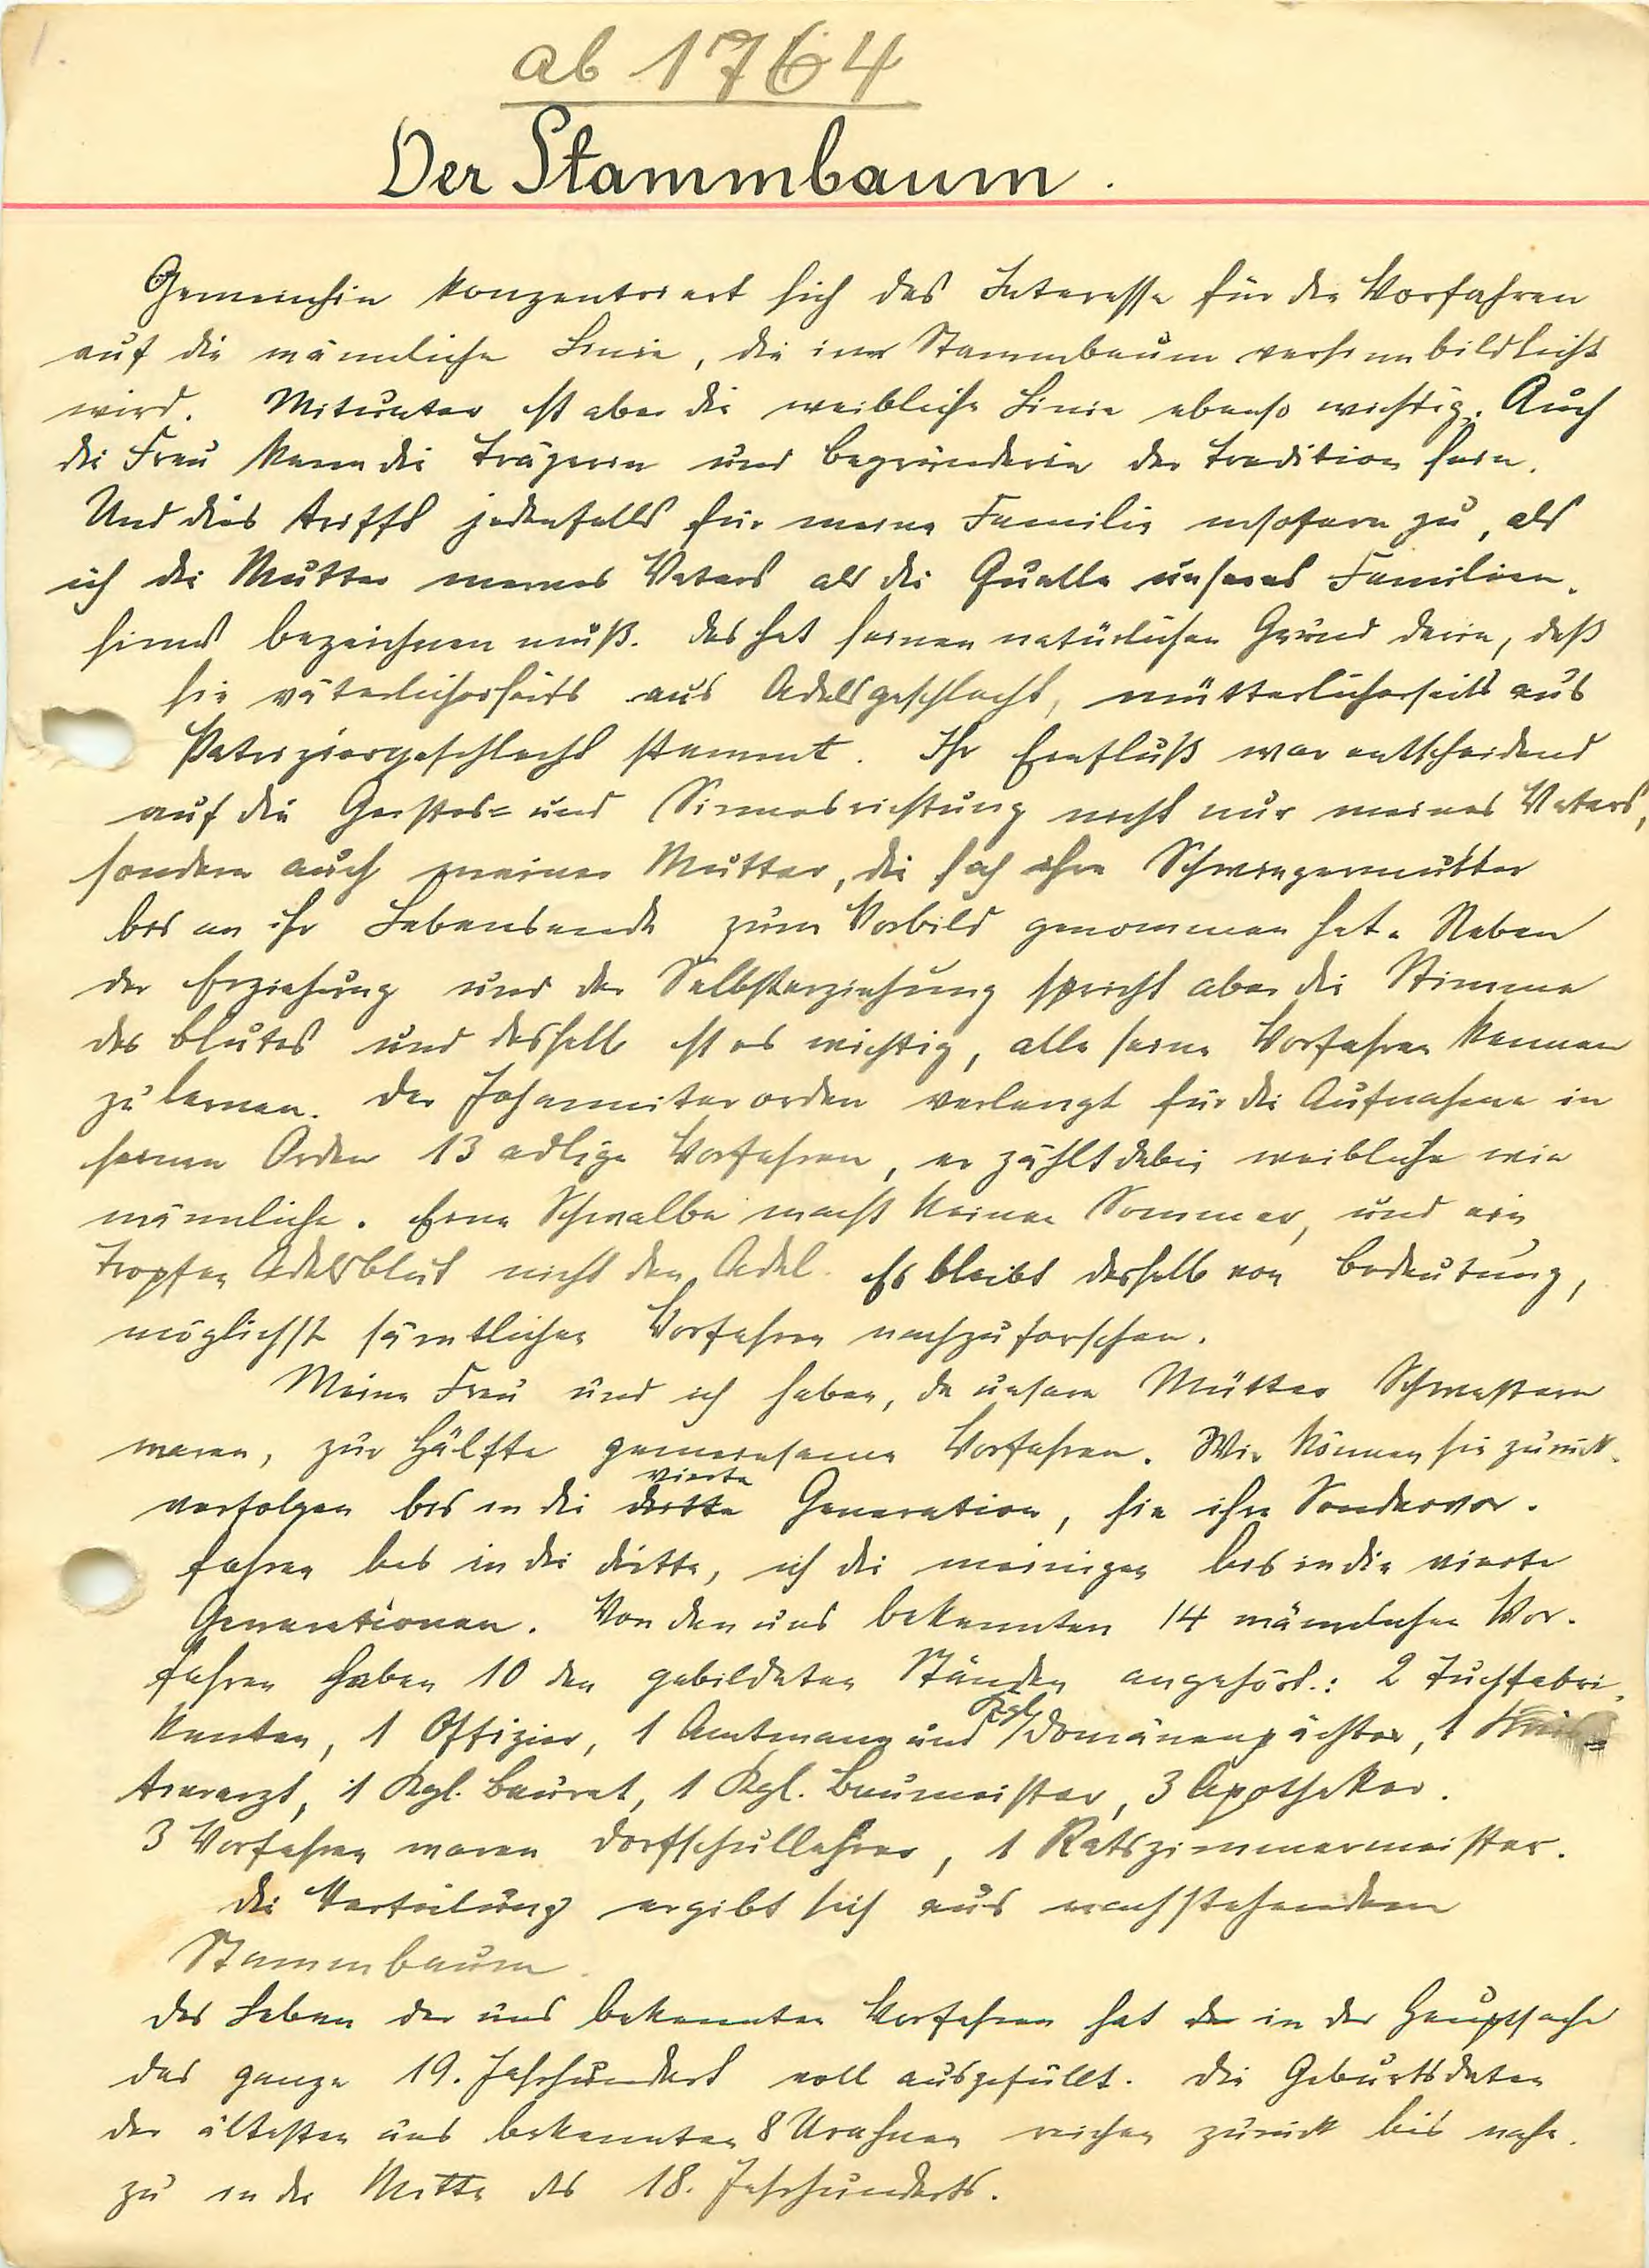 1.
ab 1764
Der Stammbaum.
Gemeinhin konzentriert sich das Interesse für die Vorfahren
auf die männliche Linie, die im Stammbaum versinnbildlicht
wird. Mitunter ist aber die weibliche Linie ebenso wichtig. Auch
die Frau kann die Trägerin und Begründerin der Tradition sein.
Und dies trifft jedenfalls für meine Familie insofern zu, als
ich die Mutter meines Vaters als die Quelle unseres Familien-
sinns bezeichnen muß. Das hat seinen natürlichen Grund darin, daß
sie väterlicherseits aus Adelsgeschlecht, mütterlicherseits aus
Patriziergeschlecht stammt. Ihr Einfluß war entscheidend
auf die Geistes- und Sinnesrichtung nicht nur meines Vaters,
sondern auch meiner Mutter, die sich ihre Schwiegermutter
bis an ihr Lebensende zum Vorbild genommen hat. Neben
der Erziehung und der Selbsterziehung spricht aber die Stimme
des Blutes und deshalb ist es wichtig, alle seine Vorfahren kennen
zu lernen. Der Johanniterorden verlangt für die Aufnahme in
seinen Orden 13 adlige Vorfahren, er zählt dabei weibliche wie
männliche. Eine Schwalbe macht keinen Sommer, und ein
Tropfen Adelsblut nicht den Adel. Es bleibt deshalb von Bedeutung,
möglichst sämtlichen Vorfahren nachzuforschen.
Meine Frau und ich haben, da unsere Mütter Schwestern
waren, zur Hälfte gemeinsame Vorfahren. Wir können sie zurück-
vierte
verfolgen bis in die dritte Generation, sie ihre Sondervor-
fahren bis in die dritte, ich die meinigen bis in die vierte
Generationen. Von den uns bekannten 14 männlichen Vor-
fahren haben 10 den gebildeten Ständen angehört.: 2 Tuchfabri-
Kgl.
kanten, 1 Offizier, 1 Amtmann und Domänenpächter, 1
tierarzt, 1 Kgl. Baurat, 1 Kgl. Baumeister, 3 Apotheker.
3 Vorfahren waren Dorfschullehrer, 1 Ratszimmermeister.
Die Verteilung ergibt sich aus nachstehendem
Stammbaum.
Das Leben der uns bekannten Vorfahren hat der in der Hauptsache
das ganze 19. Jahrhundert voll ausgefüllt. Die Geburtsdaten
der ältesten uns bekannten 8 Urahnen reichen zurück bis nahe-
zu in die Mitte des 18. Jahrhunderts.